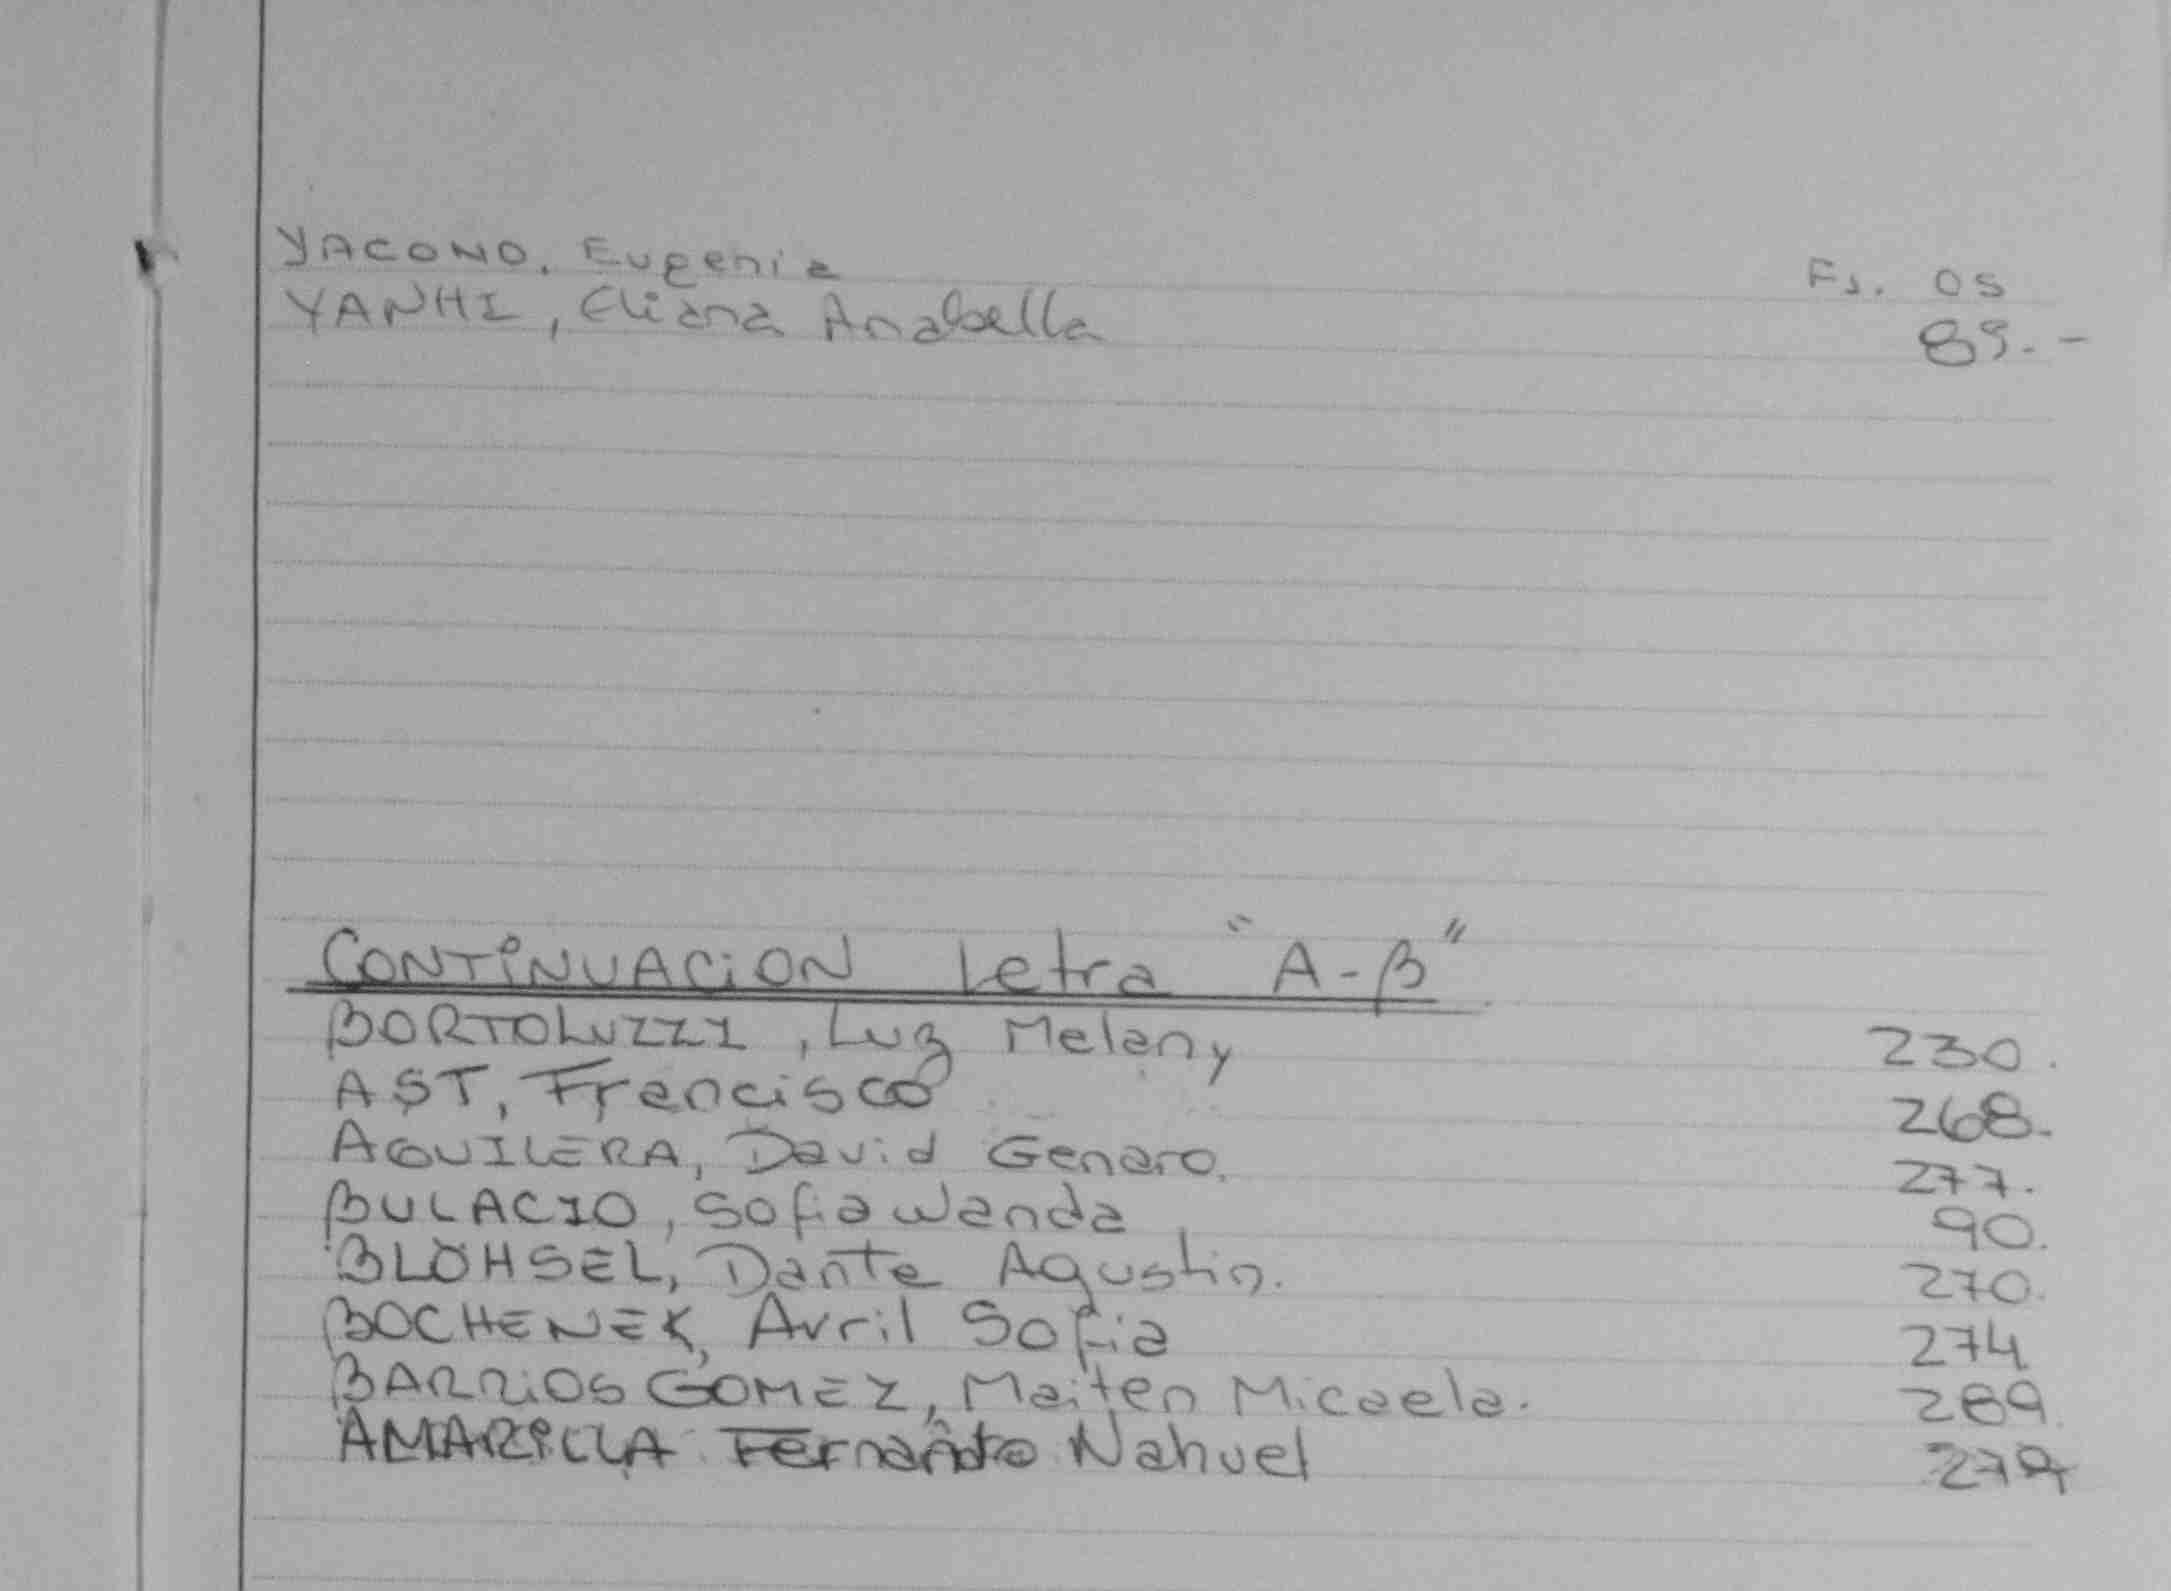 YACONO, Eugenia Fs. 05
YANHI, Eliana Anabella 89.-
CONTINUACION Letra "A-B"
BORTOLUZZI, Luz Melany 230.
AST, Francisco 268.-
AGUILERA, David Genaro. 277.
BULACIO, Sofia Wanda 90.
BLOHSEL, Dante Agustin. 270.
BOCHENEK, Avril Sofia 274
BARRIOS GOMEZ, Maiten Micaela. 289.
AMARILLA Fernando Nahuel 279